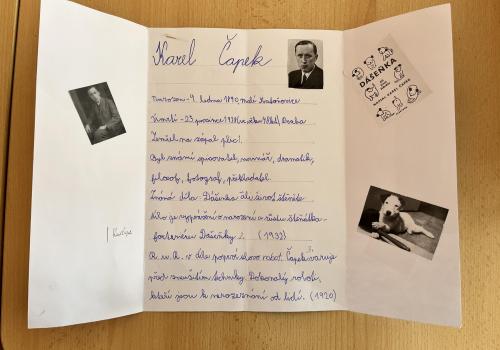 Karel Čapek
Narozen - 9. ledna 1890, malé Svatoňovice
Zemřel na zápal plic!
Byl známý spisovatel, novinář, dramatik,
filozof, fotograf, překladatel.
Známá díla - Dášeňka čili život štěněte
Dílo je vyprávění o narození a růstu štěňátka -
foxteriéru Dášeňky :. (1932)
R. u. R. v díle poprvé slovo robot. Čapek varuje
před zneužitím techniky. Dokonalý robot,
kteří jsou k nerozeznání od lidí. (1920)
DÁŠEŇKA
KAREL ČAPEK